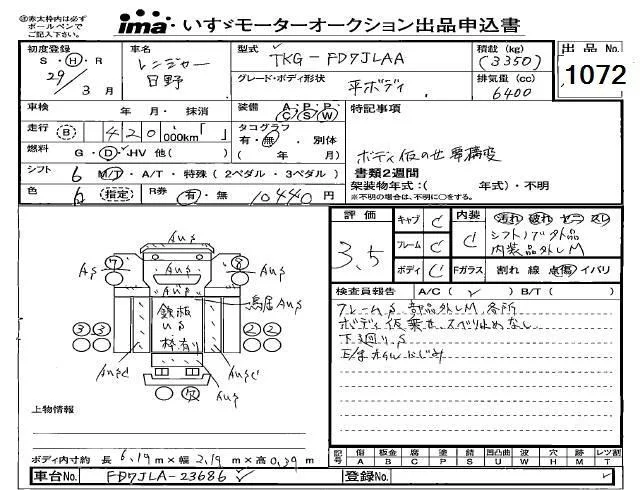 ㊟赤太枠内は必ず
ボールペンで
ご記入下さい。
ima いすゞモーターオークション出品申込書
初度登録
S・H・R
29年 3月
車名
レンジャー
日野
型式 TKG-FD7JLAA
グレード・ボディ形状
平ボディ
積載 (kg)
(3350)
排気量 (cc)
6400
出品No.
1072
車検 年・月・抹消
走行 (B) 420,000km「 」
燃料 G・D・HV 他( )
シフト 6 M/T・A/T・特殊(2ペダル・3ペダル)
色 (指定) R券 有・無 10440円
装備 A・P・P C S W
タコグラフ
有・無・別体
( 年 月)
特記事項
ボディ仮のせ 要構変
書類2週間
架装物年式:( 年式)・不明
※不明の場合は、不明に○をする。
評価
3.5
キャブ C
フレーム C
ボディ C
内装
C
Fガラス
汚れ 破れ コゲ スレ
シフトノブ外品
内装品外しM
割れ 線 点(傷) イバリ
検査員報告 A/C( ✓ ) B/T( )
フレームS 部品外しM 各所
ボディ仮乗せ、スベリ止めなし
下廻りS
E/gオイルにじみ
AUS
AS
7
8
AS
鳥居AUS
鉄板
US
枠有り
3 3
2 2
AUSC
AUSC
欠
AUS
上物情報
ボディ内寸約 長 6.19m×幅 2.19m×高 0.39m
記号 傷 A 板金 B 腐 C 塗 P 錆 S 凹凸曲 U 波 W 穴 H 跡 M レツ割 T
車台No. FD7JLA-23686 ✓
登録No.